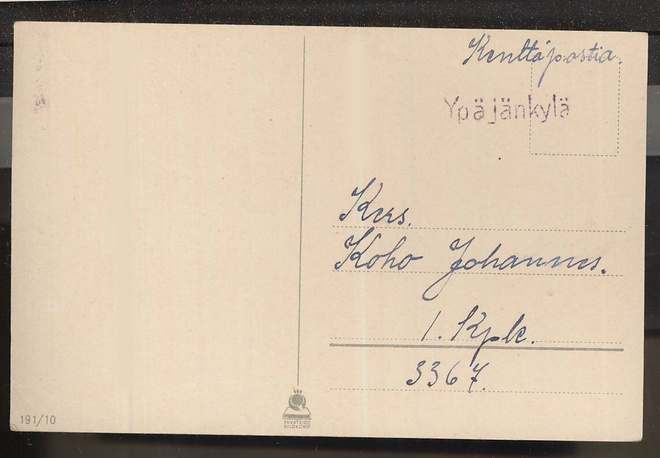 Kenttäpostia.
Ypäjänkylä
Kers.
Koho Johannes.
1. Kplc.
3367.
191/10